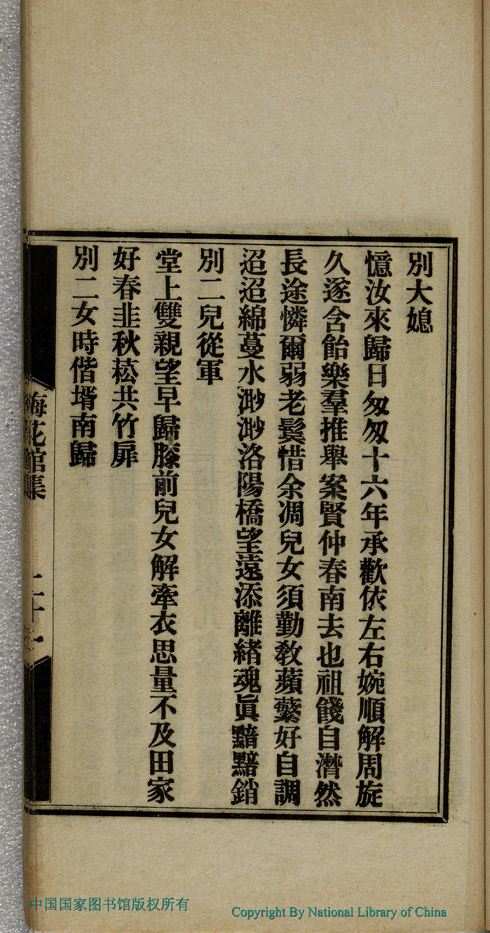 別大媳
憶汝來歸日匆匆十六年承歡依左右婉順解周旋
久遂含飴樂羣推舉案賢仲春南去也祖餞自潸然
長途憐爾弱老鬢惜余凋兒女須勤教蘋蘩好自調
迢迢綿蔓水渺渺洛陽橋望遠添離緒魂眞黯黯銷
別二兒從軍
堂上雙親望早歸膝前兒女解牽衣思量不及田家
好春韭秋菘共竹扉
別二女時偕壻南歸
梅花館集
二十一
中国国家图书馆版权所有
Copyright By National Library of China